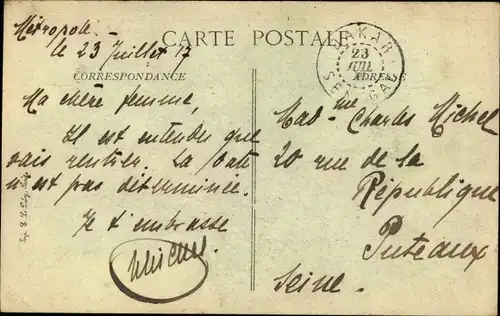 Métropole
le 23 Juillet 17
CARTE POSTALE
CORRESPONDANCE
ADRESSE
DAKAR
23
JUIL
SENEGAL
Ma chère femme,
Il est entendu que
vais rentrer. La date
n'est pas déterminée.
Je t'embrasse
Mad-me Charles Michel
20 rue de la
République
Puteaux
Seine.